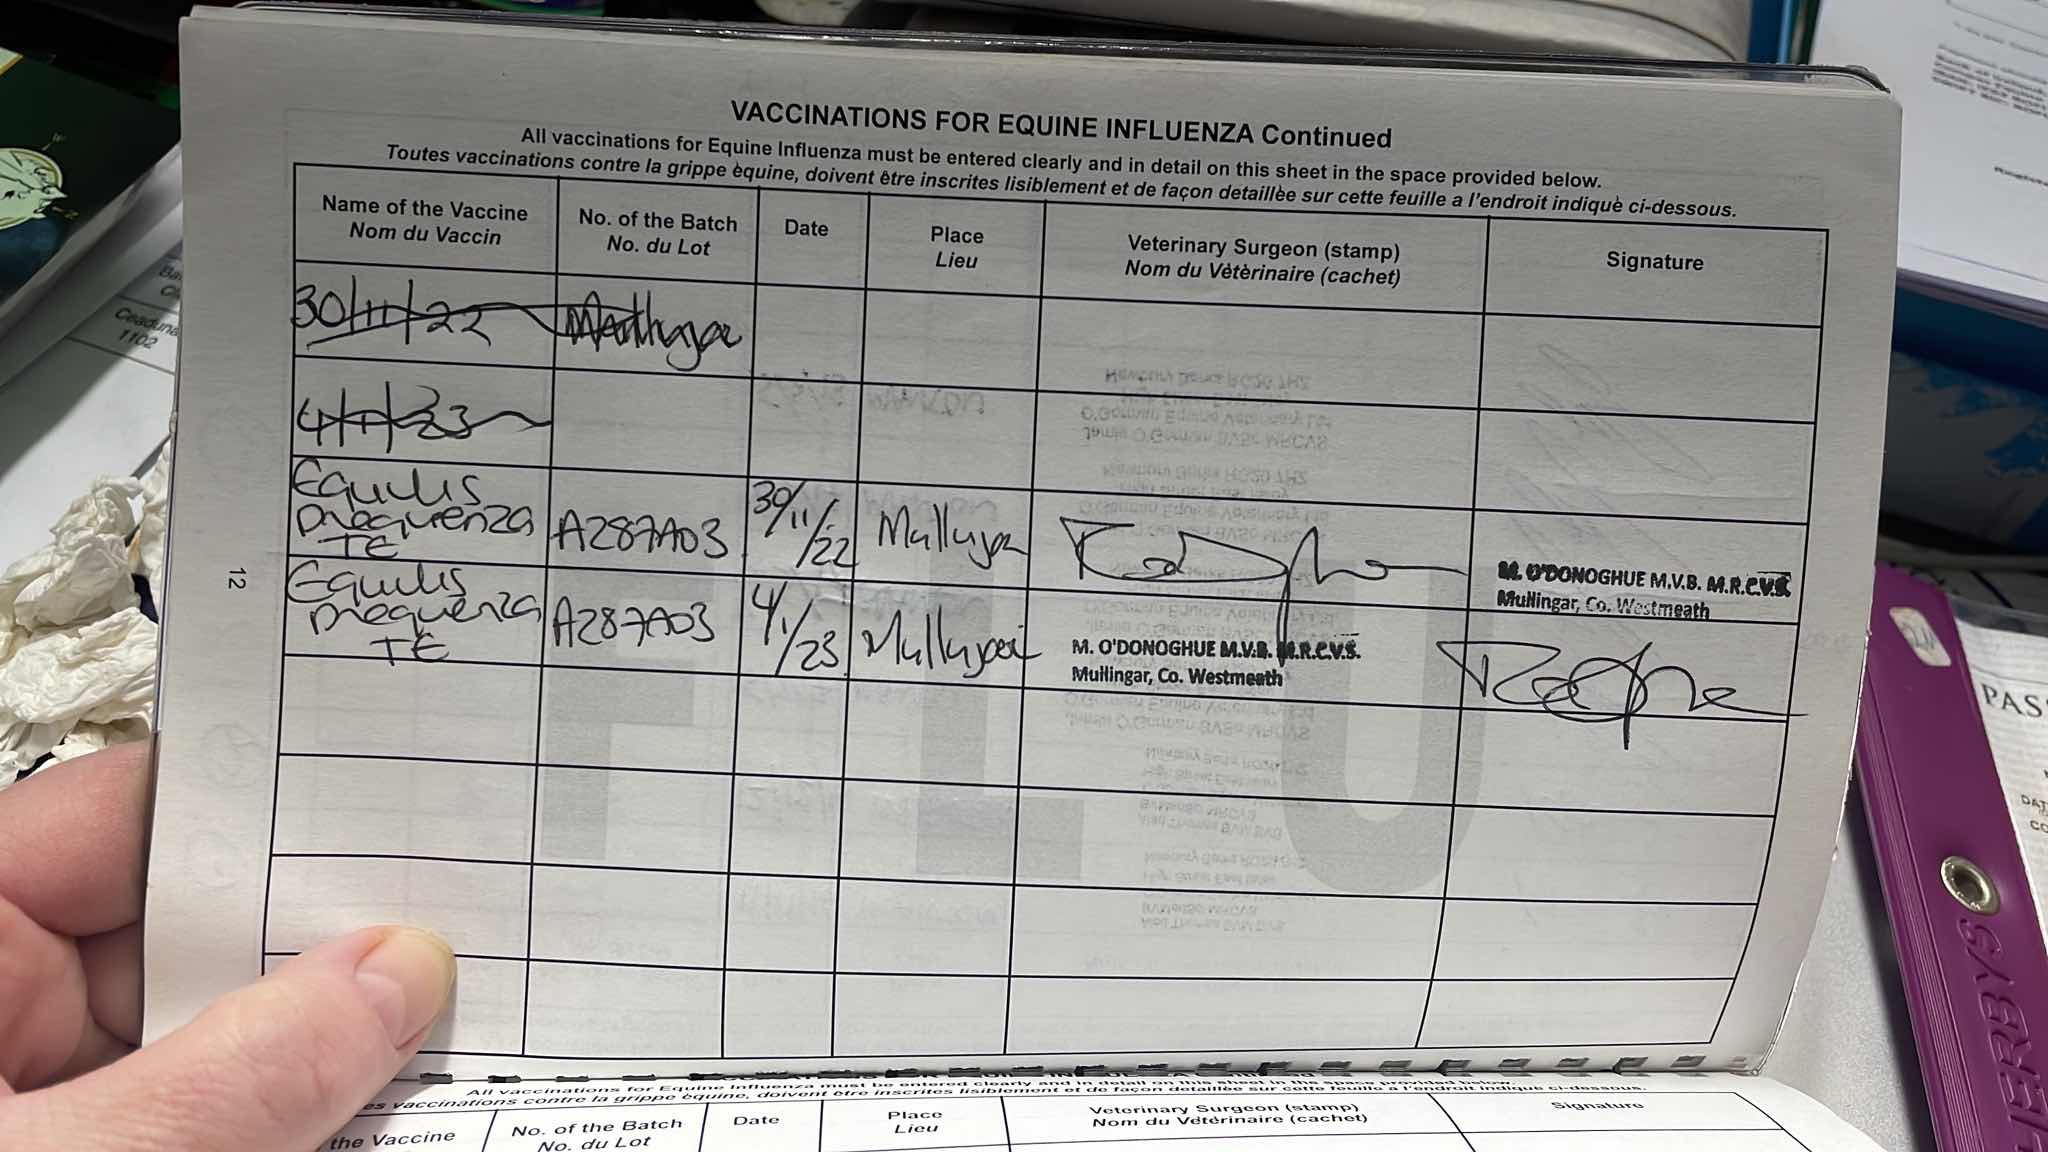 VACCINATIONS FOR EQUINE INFLUENZA Continued
All vaccinations for Equine Influenza must be entered clearly and in detail on this sheet in the space provided below.
Toutes vaccinations contre la grippe èquine, doivent être inscrites lisiblement et de façon detaillèe sur cette feuille a l'endroit indiquè ci-dessous.
Name of the Vaccine
Nom du Vaccin
No. of the Batch
No. du Lot
Date
Place
Lieu
Veterinary Surgeon (stamp)
Nom du Vètèrinaire (cachet)
Signature
30/11/22
4/1/23
Equilis
prequenza
TE
A287A03
30/11/22
Mullingar
M. O'DONOGHUE M.V.B. M.R.C.V.S.
Mullingar, Co. Westmeath
Equilis
prequenza
TE
A287A03
4/1/23
Mullingar
M. O'DONOGHUE M.V.B. M.R.C.V.S.
Mullingar, Co. Westmeath
FLU
12
All vaccinations for Equine Influenza must be entered clearly and in detail on this sheet in the space provided below.
es vaccinations contre la grippe èquine, doivent être inscrites lisiblement et de façon detaillèe sur cette feuille a l'endroit indiquè ci-dessous.
the Vaccine
No. of the Batch
No. du Lot
Date
Place
Lieu
Veterinary Surgeon (stamp)
Nom du Vètèrinaire (cachet)
Signature
1102
PAS
HERBYS